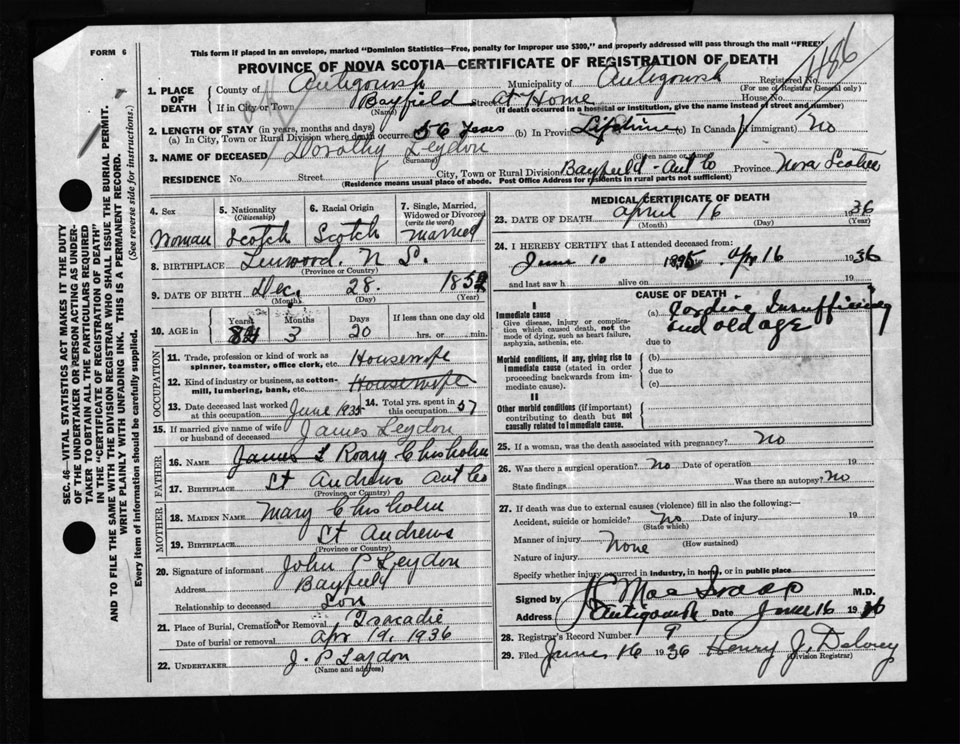 FORM 6
This form if placed in an envelope, marked "Dominion Statistics—Free, penalty for improper use $300," and properly addressed will pass through the mail "FREE"
PROVINCE OF NOVA SCOTIA—CERTIFICATE OF REGISTRATION OF DEATH
1. PLACE OF DEATH
County of Antigonish Municipality of Antigonish Registered No. 1486
(For use of Registrar General only)
If in City or Town Bayfield Street At Home House No.
(Name) (If death occurred in a hospital or institution, give the name instead of street and number)
2. LENGTH OF STAY (in years, months and days)
(a) In City, Town or Rural Division where death occurred 56 years (b) In Province Lifetime (c) In Canada (if immigrant) No
3. NAME OF DECEASED Dorothy Leydon
(Surname) (Given name or names)
RESIDENCE No. Street City, Town or Rural Division Bayfield - Ant Co Province Nova Scotia
(Residence means usual place of abode. Post Office Address for residents in rural parts not sufficient)
4. Sex
Woman
5. Nationality
(Citizenship)
Scotch
6. Racial Origin
Scotch
7. Single, Married, Widowed or Divorced
(write the word)
Married
8. BIRTHPLACE Linwood. N S.
(Province or Country)
9. DATE OF BIRTH Dec. 28. 1852
(Month) (Day) (Year)
10. AGE in
Years Months Days If less than one day old
84 3 20 hrs. or min.
OCCUPATION
11. Trade, profession or kind of work as spinner, teamster, office clerk, etc. Housewife
12. Kind of industry or business, as cotton-mill, lumbering, bank, etc. Housewife
13. Date deceased last worked at this occupation June 1935
14. Total yrs. spent in this occupation 57
15. If married give name of wife or husband of deceased James Leydon
FATHER
16. NAME James L Roary Chisholm
17. BIRTHPLACE St Andrews Ant Co
(Province or Country)
MOTHER
18. MAIDEN NAME Mary Chisholm
19. BIRTHPLACE St Andrews
(Province or Country)
20. Signature of informant John P Leydon
Address Bayfield
Relationship to deceased Son
21. Place of Burial, Cremation or Removal Tracadie
Date of burial or removal Apr 19, 1936
22. UNDERTAKER J. P Leydon
(Name and address)
MEDICAL CERTIFICATE OF DEATH
23. DATE OF DEATH April 16 1936
(Month) (Day) (Year)
24. I HEREBY CERTIFY that I attended deceased from:
June 10 1895 Apr 16 1936
and last saw h alive on 19
CAUSE OF DEATH
I
Immediate cause
Give disease, injury or complication which caused death, not the mode of dying, such as heart failure, asphyxia, asthenia, etc.
(a) Cardiac Insufficiency and old age
due to
Morbid conditions, if any, giving rise to immediate cause (stated in order proceeding backwards from immediate cause).
(b)
due to
(c)
II
Other morbid conditions (if important) contributing to death but not causally related to immediate cause.
25. If a woman, was the death associated with pregnancy? No
26. Was there a surgical operation? No Date of operation 19
State findings Was there an autopsy? No
27. If death was due to external causes (violence) fill in also the following:—
Accident, suicide or homicide? No Date of injury 19
(State which)
Manner of injury None
(How sustained)
Nature of injury
Specify whether injury occurred in industry, in home, or in public place
Signed by M.D.
Address Antigonish Date June 16 1936
28. Registrar's Record Number 9
29. Filed June 16 1936 Henry J. Delorey
(Division Registrar)
SEC. 46—VITAL STATISTICS ACT MAKES IT THE DUTY
OF THE UNDERTAKER OR PERSON ACTING AS UNDERTAKER
TO OBTAIN ALL THE PARTICULARS REQUIRED
IN THE "CERTIFICATE OF REGISTRATION OF DEATH"
AND TO FILE THE SAME WITH THE DIVISION REGISTRAR WHO SHALL ISSUE THE BURIAL PERMIT.
WRITE PLAINLY WITH UNFADING INK. THIS IS A PERMANENT RECORD.
Every item of information should be carefully supplied. (See reverse side for instructions.)